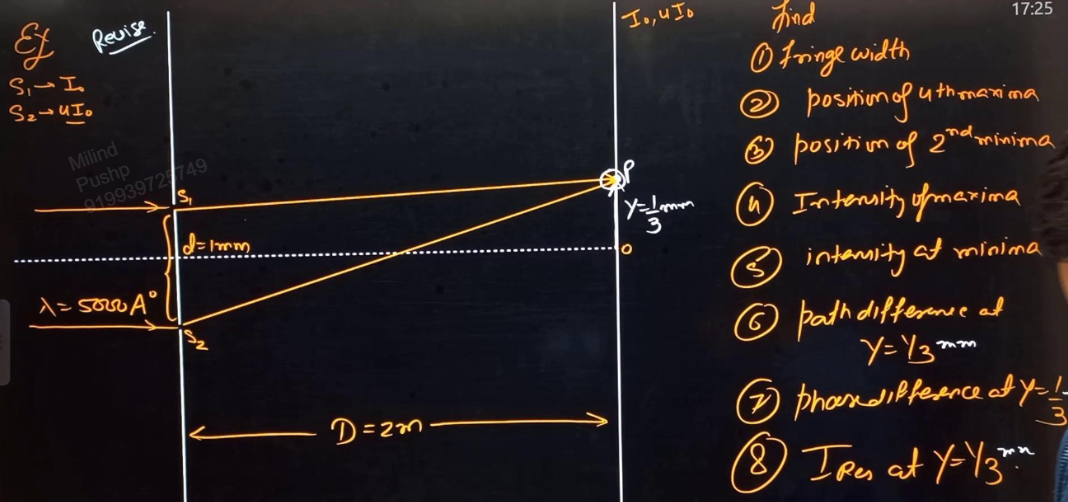 Ex
Revise.
S₁ → I₀
S₂ → 4I₀
Milind
Pushp
919939725749
S₁
d=1mm
λ = 5000A°
S₂
D = 2m
I₀, 4I₀
P
Y = 1/3 mm
O
17:25
find
① fringe width
② position of 4th maxima
③ position of 2nd minima
④ Intensity of maxima
⑤ intensity at minima
⑥ path difference at
Y = 1/3 mm
⑦ phase difference at Y = 1/3
⑧ IRes at Y = 1/3 mm